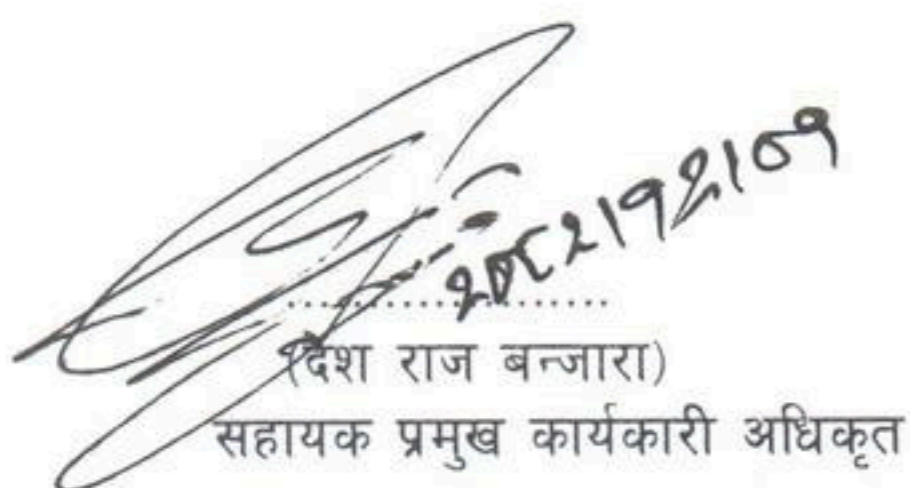 २०८२।१२।०१
....................
(देश राज बन्जारा)
सहायक प्रमुख कार्यकारी अधिकृत